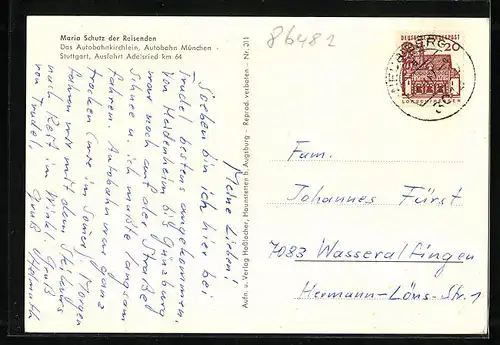 Maria Schutz der Reisenden
Das Autobahnkirchlein, Autobahn München -
Stuttgart, Ausfahrt Adelsried km 64
86482
DEUTSCHE BUNDESPOST
20
LORSCH/HESSEN
Aufn. u. Verlag Hoßlacher, Haunstetten b. Augsburg - Reprod. verboten - Nr. 311
Meine Lieben!
Soeben bin ich hier bei
Trudel bestens angekommen.
Von Heidenheim bis Günzburg
war noch auf der Straße
Schnee u. ich mußte langsam
fahren. Autobahn war ganz
trocken (wie im Sommer). Morgen
fahren wir mit dem
nach Reit im Winkl. Gruß
von Trudel, Gruß Helmuth
Fam.
Johannes Fürst
7083 Wasseralfingen
Hermann-Löns-Str. 1